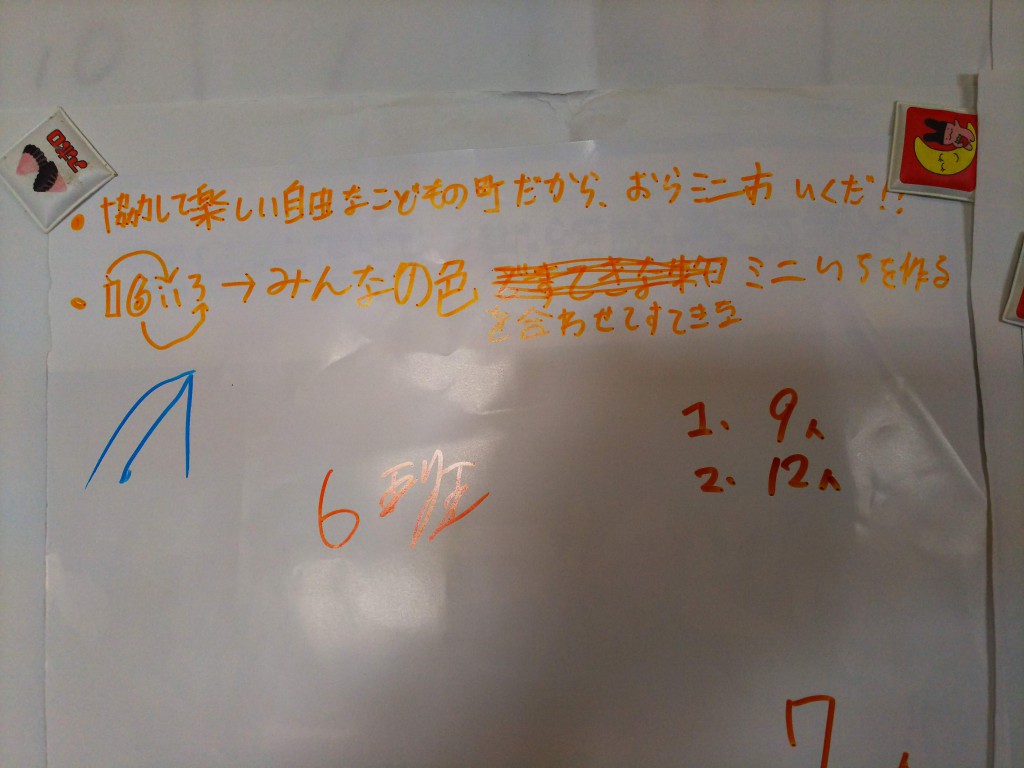 ・協力して楽しい自由なこどもの町だから、おらミニ市 いくだ!!
・16いろ→みんなの色 ミニいちを作る
を合わせてすてきな
1、9人
2、12人
6班
7